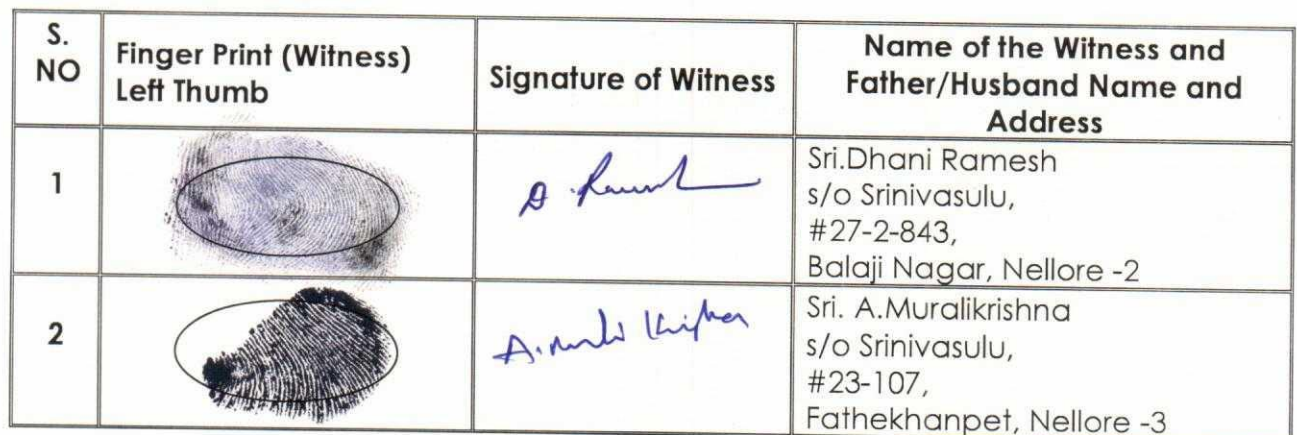 S. NO
Finger Print (Witness)
Left Thumb
Signature of Witness
Name of the Witness and
Father/Husband Name and
Address
1
D. Ramesh
Sri.Dhani Ramesh
s/o Srinivasulu,
#27-2-843,
Balaji Nagar, Nellore -2
2
A. Murali Krishna
Sri. A.Muralikrishna
s/o Srinivasulu,
#23-107,
Fathekhanpet, Nellore -3